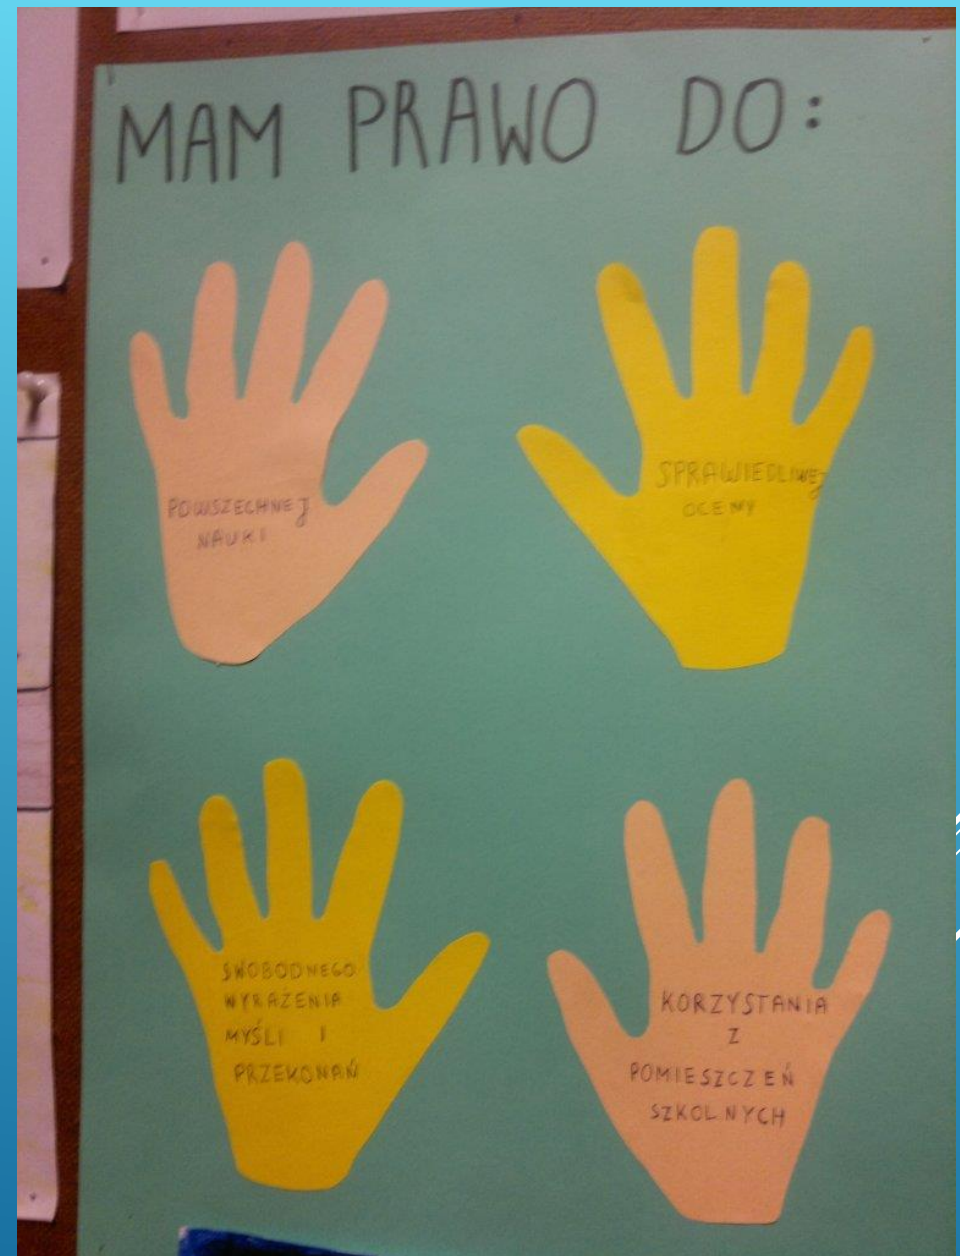 MAM PRAWO DO:
POWSZECHNEJ
NAUKI
SPRAWIEDLIWEJ
OCENY
SWOBODNEGO
WYRAŻENIA
MYŚLI I
PRZEKONAŃ
KORZYSTANIA
Z
POMIESZCZEŃ
SZKOLNYCH